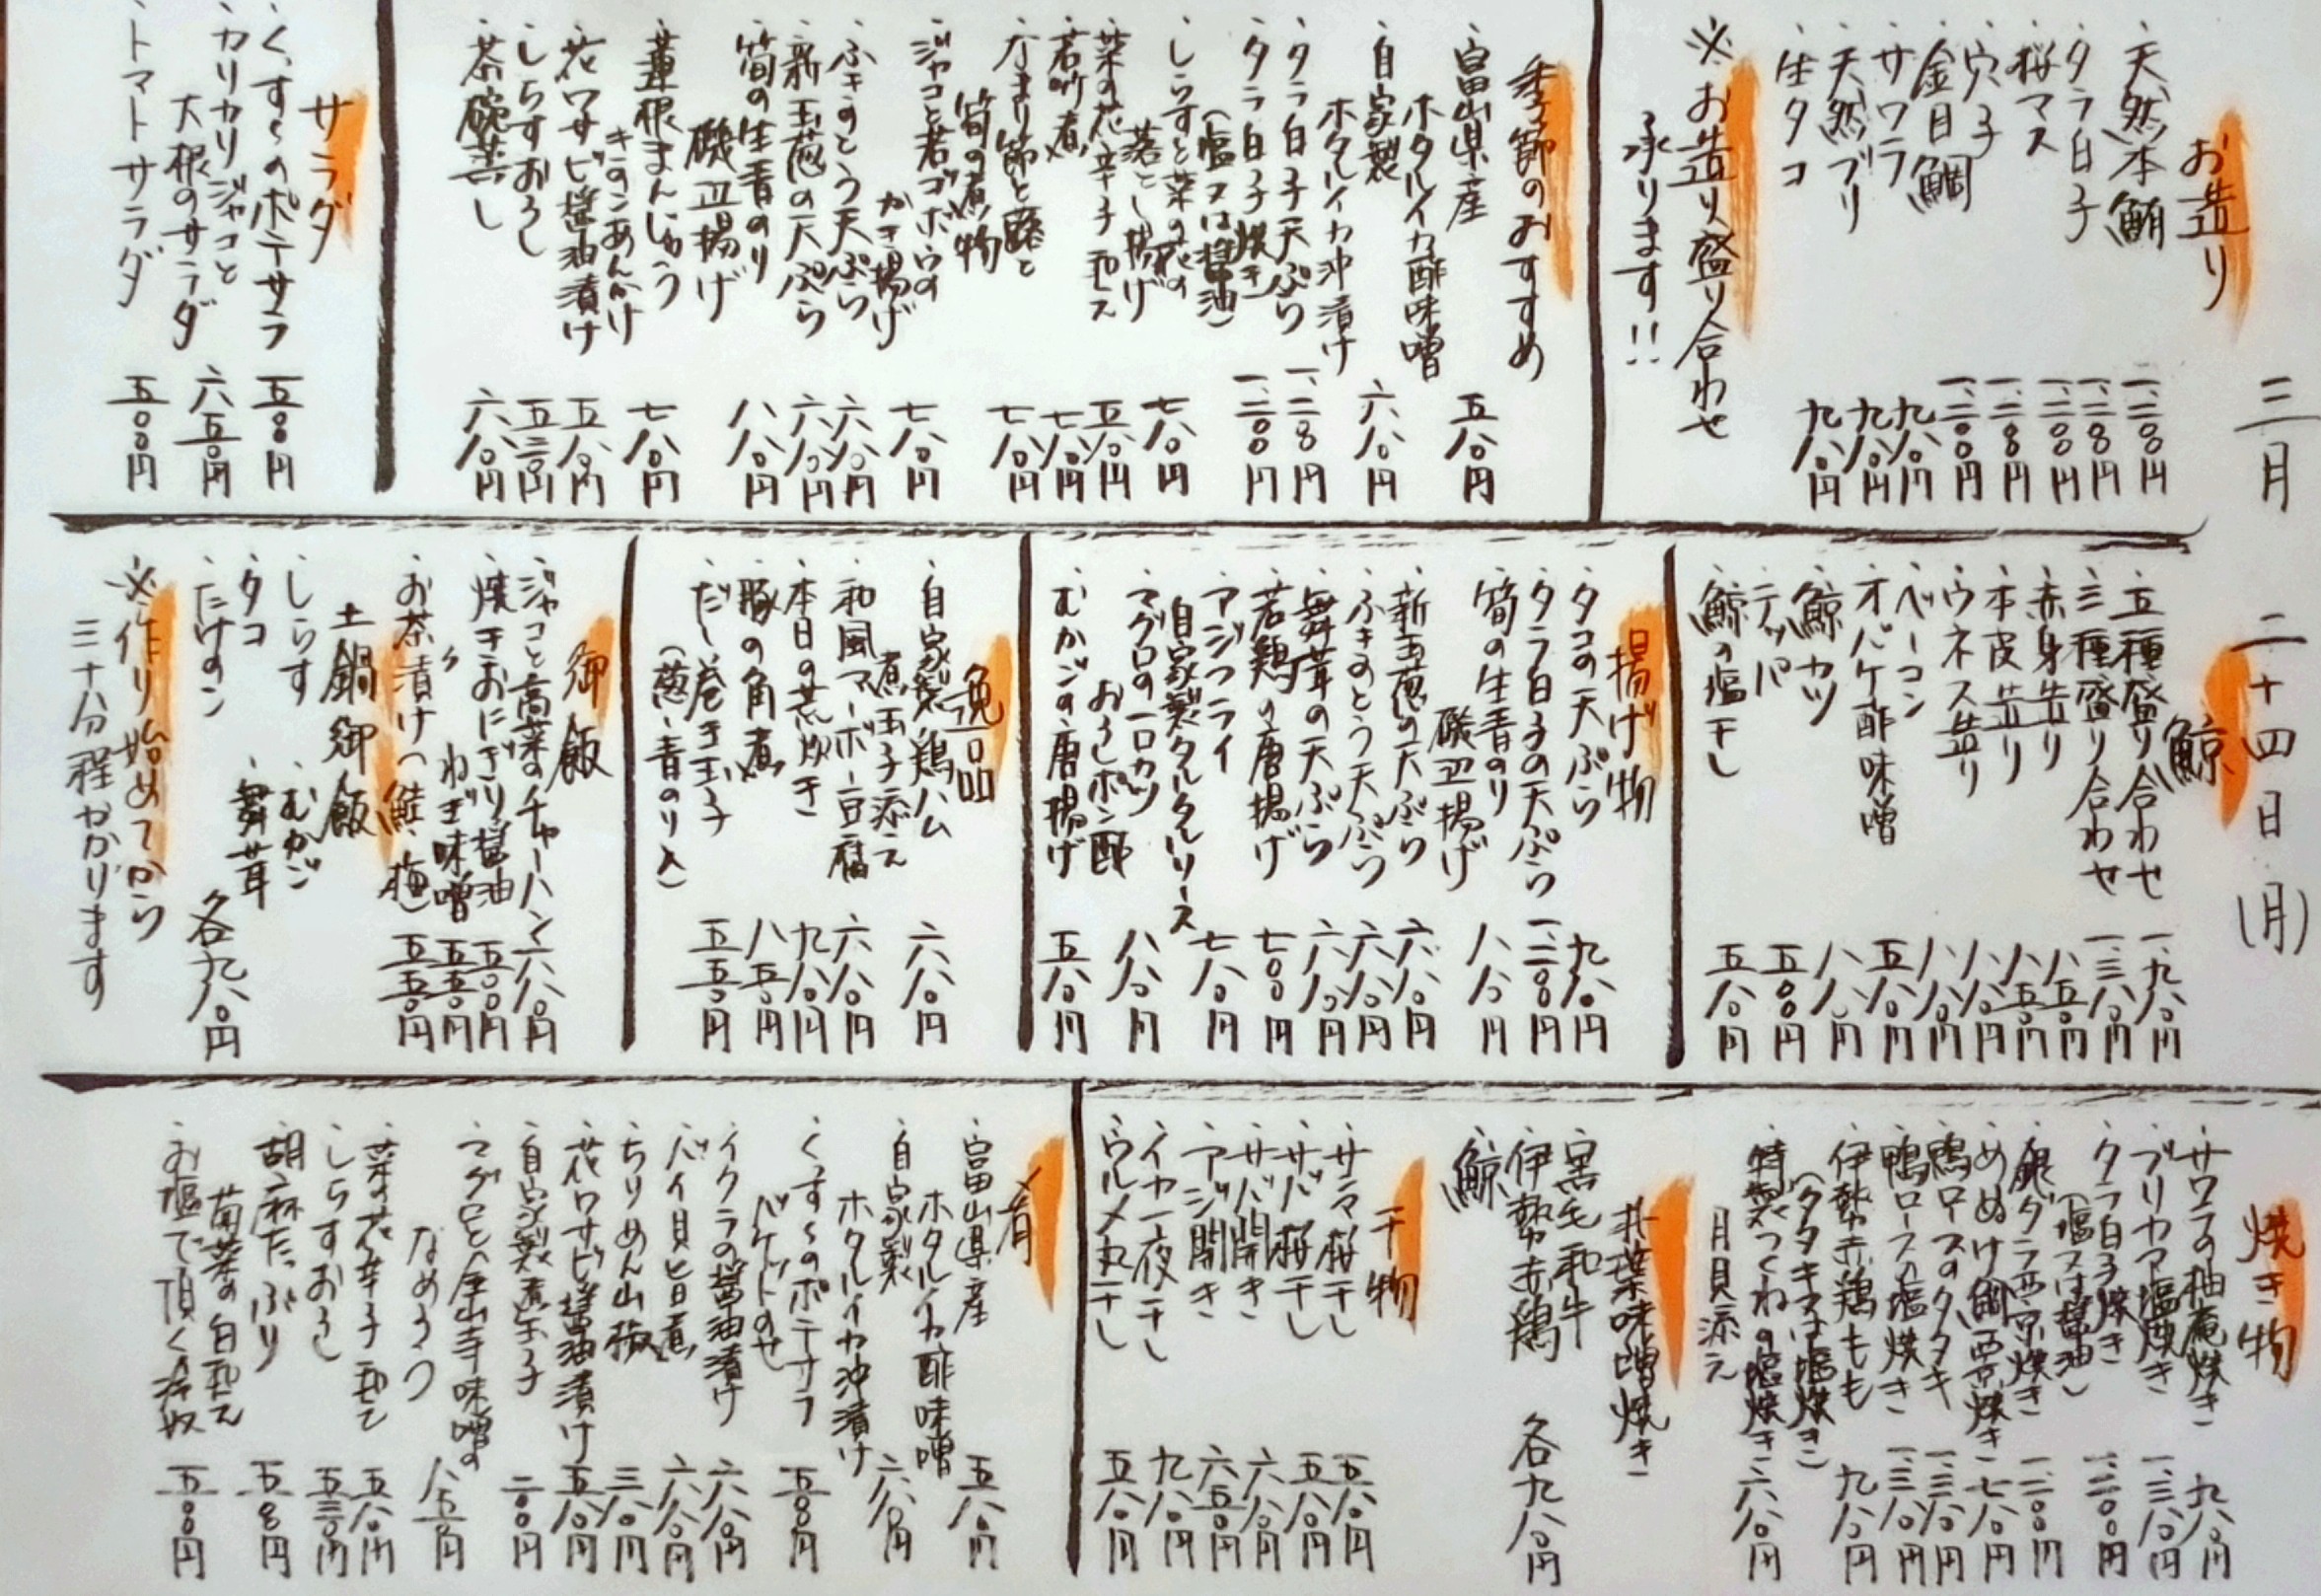 三月 二十四日(月)
お造り
・天然本鮪 一、二〇〇円
・タラ白子 一、二〇〇円
・桜マス 一、二〇〇円
・穴子 一、二〇〇円
・金目鯛 一、二〇〇円
・サワラ 九八〇円
・天然ブリ 九八〇円
・生タコ 九八〇円
※お造り盛り合わせ
承ります!!
季節のおすすめ
・富山県産
ホタルイカ酢味噌 五八〇円
・自家製
ホタルイカ沖漬け 六八〇円
・タラ白子天ぷら 一、二〇〇円
・タラ白子焼き
(塩又は醤油) 一、二〇〇円
・しらすと菜の花の
落とし揚げ 七八〇円
・菜の花辛子和え 五八〇円
・若竹煮 七八〇円
筍の煮物 七八〇円
・ジャコと若ゴボウの
かき揚げ 七八〇円
・ふきのとう天ぷら 六八〇円
・新玉葱の天ぷら 六八〇円
・筍の生青のり
磯辺揚げ 八八〇円
・蓮根まんじゅう
キノコあんかけ 七八〇円
・花ワサビ醤油漬け 五八〇円
・しらすおろし 五三〇円
・茶碗蒸し 六八〇円
サラダ
・くずしのポテサラ 五〇〇円
・カリカリジャコと
大根のサラダ 六五〇円
・トマトサラダ 五〇〇円
鯨
・五種盛り合わせ 一、九八〇円
・三種盛り合わせ 一、三八〇円
・赤身造り 八五〇円
・本皮造り 八五〇円
・ウネス造り 八八〇円
・ベーコン 八八〇円
・オバケ酢味噌 五八〇円
・鯨カツ 八八〇円
・テッパ 五〇〇円
・鯨の塩干し 五八〇円
揚げ物
・タコの天ぷら 九八〇円
・タラ白子の天ぷら 一、二〇〇円
・筍の生青のり
磯辺揚げ 八八〇円
・新玉葱の天ぷら 六八〇円
・ふきのとう天ぷら 六八〇円
・舞茸の天ぷら 六八〇円
・若鶏の唐揚げ 七〇〇円
・アジフライ
自家製タルタルソース 七八〇円
・マグロの一口カツ
おろしポン酢 八八〇円
・むかごの唐揚げ 五八〇円
逸品
・自家製鶏ハム
煮玉子添え 六八〇円
・和風マーボー豆腐 六八〇円
・本日の荒炊き 九八〇円
・豚の角煮 八五〇円
・だし巻き玉子
(葱・青のり入) 五五〇円
御飯
・ジャコと高菜のチャーハン 六八〇円
・焼きおにぎり醤油 五〇〇円
・〃 ねぎ味噌 五五〇円
・お茶漬け(鮭・梅) 五五〇円
土鍋御飯
・しらす ・むかご
・タコ ・舞茸
・たけのこ 各九八〇円
※作り始めてから
三十分程かかります
焼き物
・サワラの柚庵焼き 九八〇円
・ブリカマ塩焼き 一、三八〇円
・タラ白子焼き
(塩又は醤油) 一、二〇〇円
・銀ダラ西京焼き 一、二〇〇円
・めぬけ鯛西京焼き 七八〇円
・鴨ロースのタタキ 一、三八〇円
・鴨ロースの塩焼き 一、三八〇円
・伊勢赤鶏もも
(タタキ又は塩焼き) 九八〇円
・特製つくねの塩焼き
月見添え 六八〇円
朴葉味噌焼き
・黒毛和牛
・伊勢赤鶏
・鯨 各九八〇円
干物
・サンマ桜干し 五八〇円
・サバ桜干し 五八〇円
・サバ開き 六八〇円
・アジ開き 六五〇円
・イカ一夜干し 九八〇円
・ウルメ丸干し 五八〇円
肴
・富山県産
ホタルイカ酢味噌 五八〇円
・自家製
ホタルイカ沖漬け 六八〇円
・くずしのポテサラ
バケットのせ 五〇〇円
・イクラの醤油漬け 六八〇円
・バイ貝旨煮 六八〇円
・ちりめん山椒 三八〇円
・花ワサビ醤油漬け 五八〇円
・自家製煮玉子 二〇〇円
・マグロと金山寺味噌の
なめろう 八五〇円
・菜の花辛子和え 五八〇円
・しらすおろし 五三〇円
・胡麻たっぷり
菊菜の白和え 五五〇円
・お塩で頂く冷奴 五〇〇円